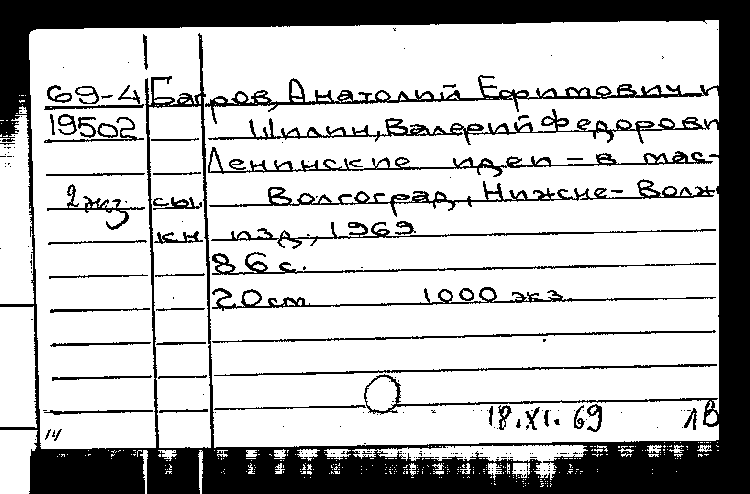 69-4 Багров, Анатолий Ефимович и
19502 Шилин, Валерий Федорови
Ленинские идеи - в мас-
2 экз сы. Волгоград, Нижне-Волж
кн изд., 1969
86 с.
20 см 1000 экз.
18.XI.69 ЛВ
14